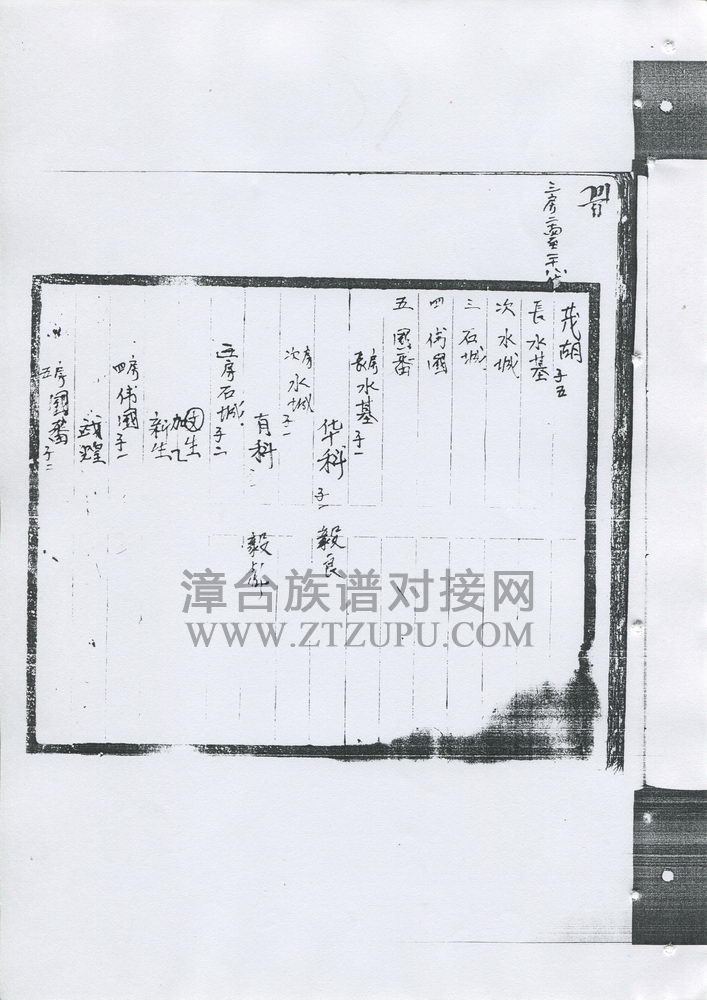 茂胡 子五
長 水基
次 水城
三 石城
四 偉國
五 國番
長房 水基 子一
华科 子一 毅良
次房 水城 子一
有科 毅
三房 石城 子二
加生
新生
四房 偉國 子一
武煌
五房 國番 子二
漳台族谱对接网
WWW.ZTZUPU.COM